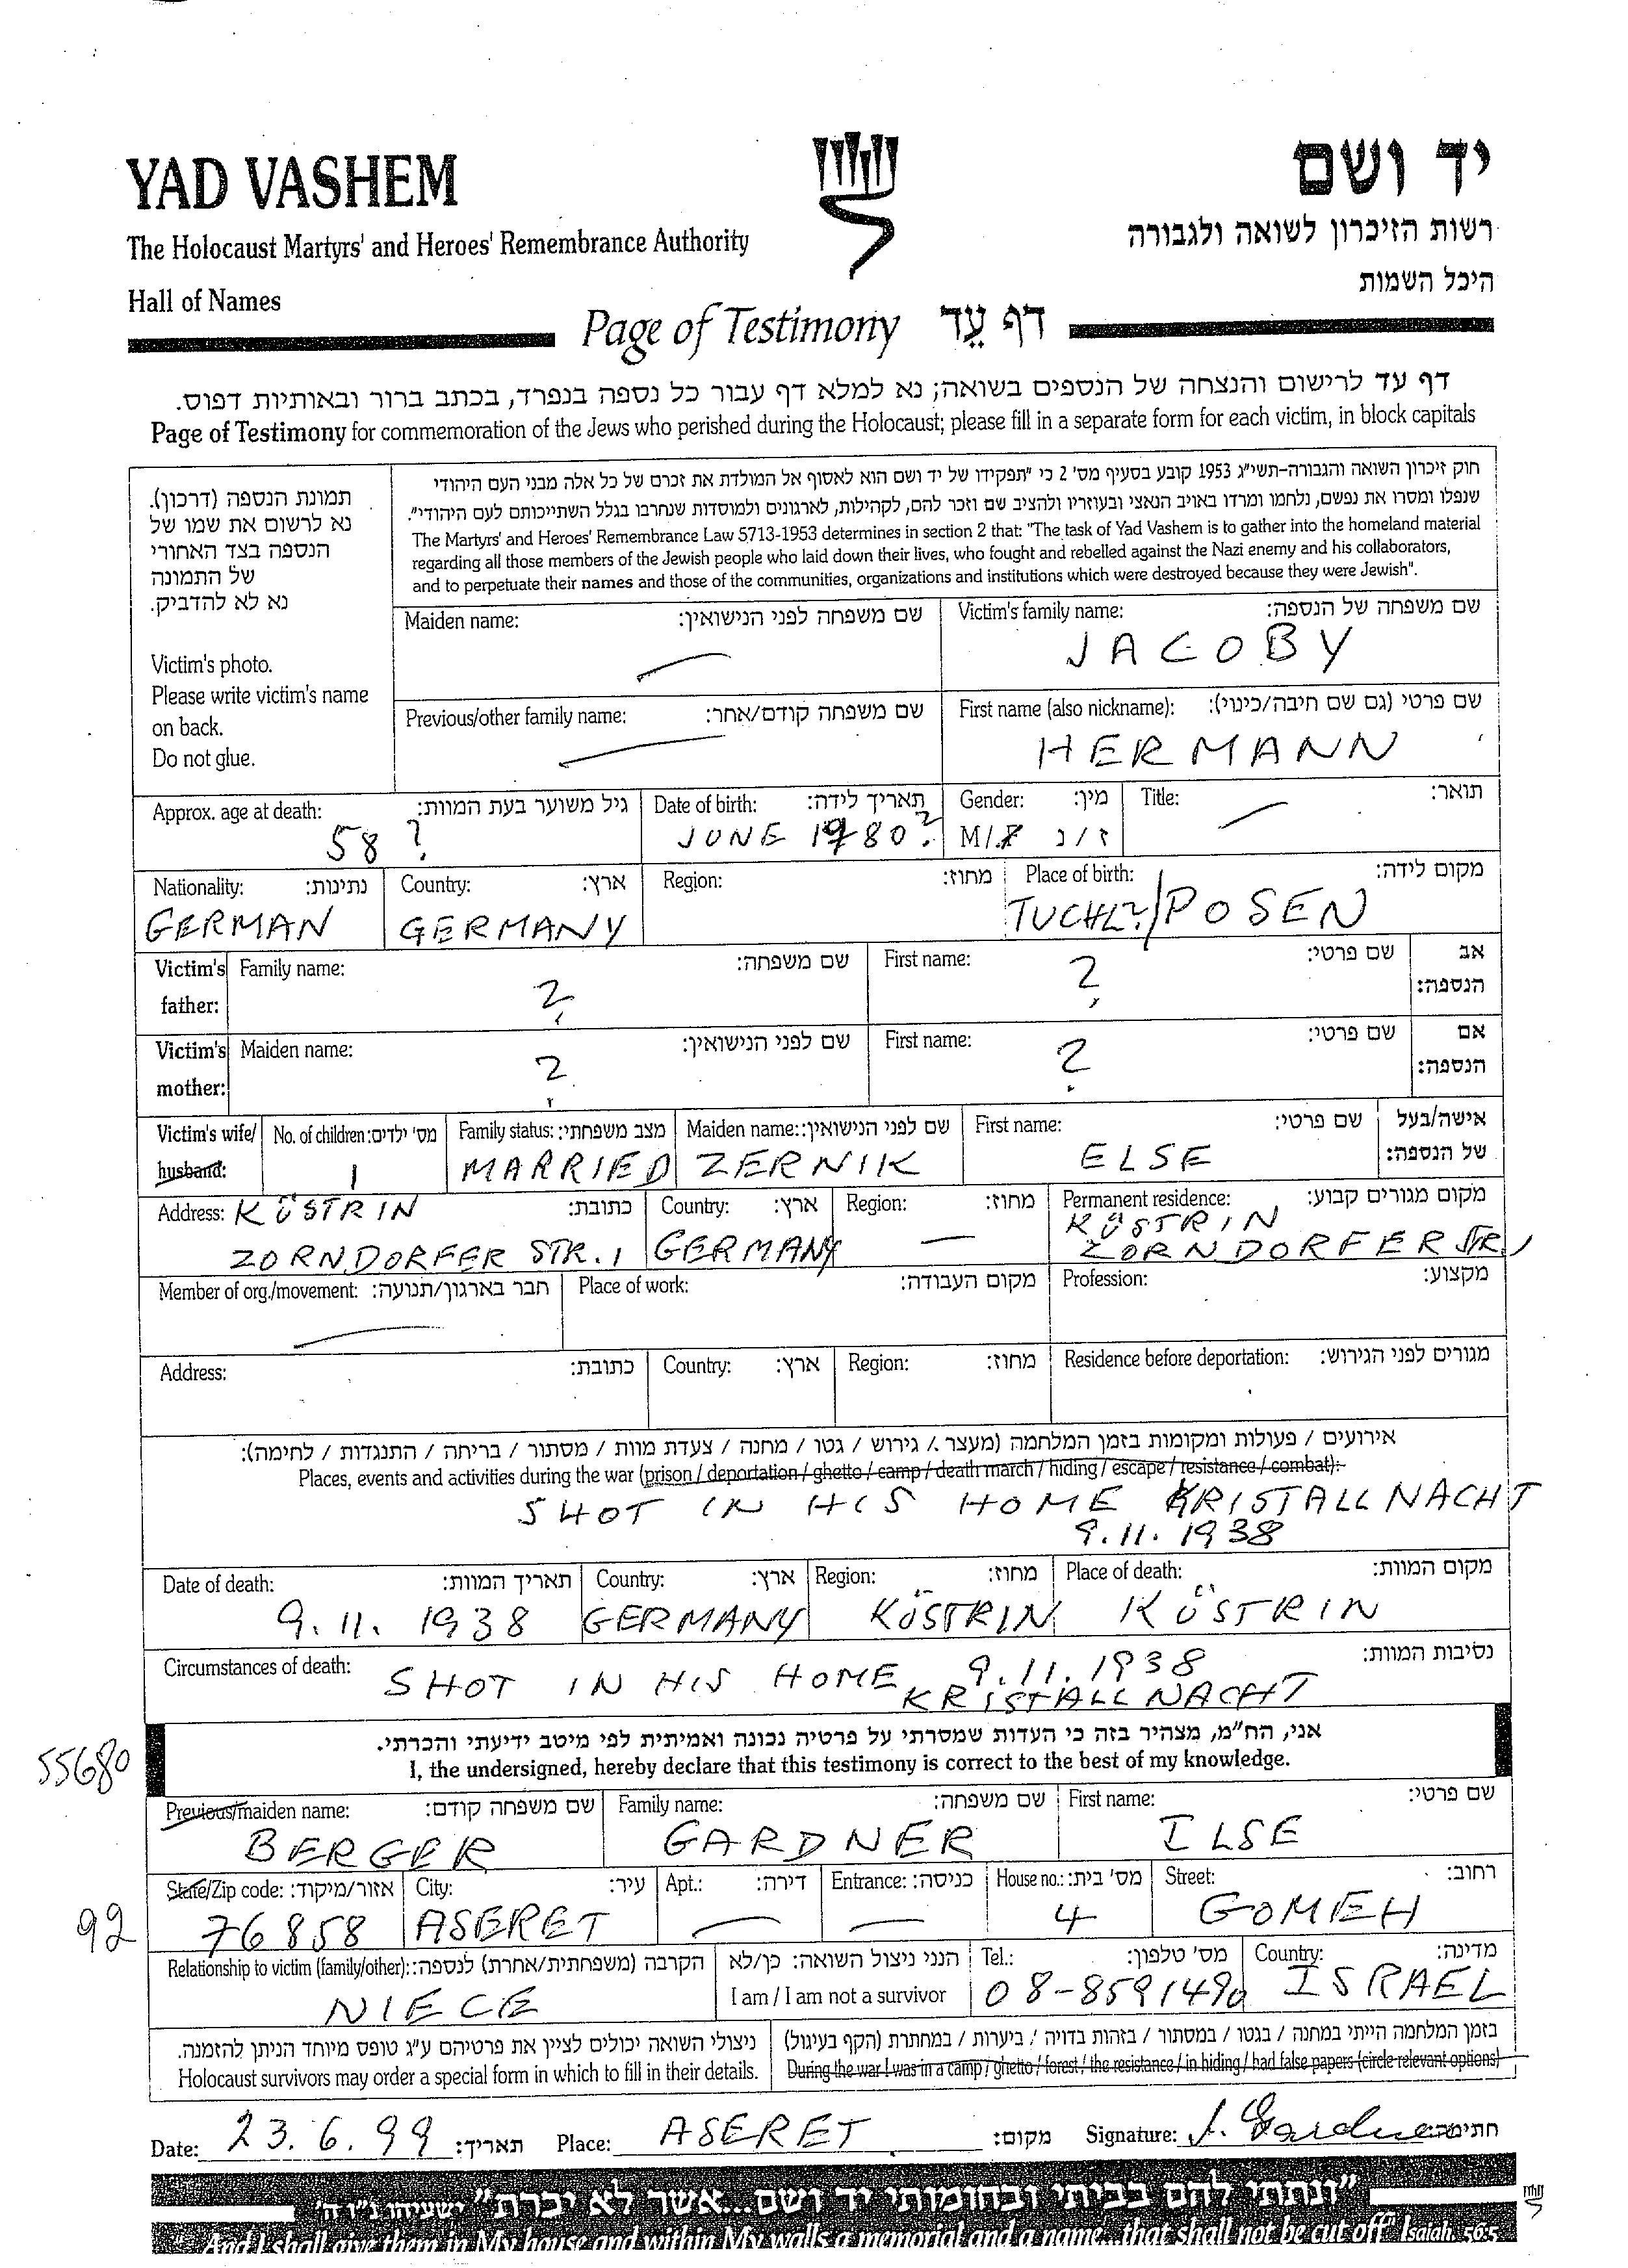 YAD VASHEM
יד ושם
The Holocaust Martyrs' and Heroes' Remembrance Authority
רשות הזיכרון לשואה ולגבורה
Hall of Names
היכל השמות
Page of Testimony דף עֵד
דף עד לרישום והנצחה של הנספים בשואה; נא למלא דף עבור כל נספה בנפרד, בכתב ברור ובאותיות דפוס.
Page of Testimony for commemoration of the Jews who perished during the Holocaust; please fill in a separate form for each victim, in block capitals
תמונת הנספה (דרכון).
נא לרשום את שמו של
הנספה בצד האחורי
של התמונה
נא לא להדביק.
Victim's photo.
Please write victim's name
on back.
Do not glue.
חוק זיכרון השואה והגבורה-תשי"ג 1953 קובע בסעיף מס' 2 כי "תפקידו של יד ושם הוא לאסוף אל המולדת את זכרם של כל אלה מבני העם היהודי
שנפלו ומסרו את נפשם, נלחמו ומרדו באויב הנאצי ובעוזריו ולהציב שם וזכר להם, לקהילות, לארגונים ולמוסדות שנחרבו בגלל השתייכותם לעם היהודי".
The Martyrs' and Heroes' Remembrance Law 5713-1953 determines in section 2 that: "The task of Yad Vashem is to gather into the homeland material
regarding all those members of the Jewish people who laid down their lives, who fought and rebelled against the Nazi enemy and his collaborators,
and to perpetuate their names and those of the communities, organizations and institutions which were destroyed because they were Jewish".
Maiden name: שם משפחה לפני הנישואין: Victim's family name: שם משפחה של הנספה:
JACOBY
Previous/other family name: שם משפחה קודם/אחר: First name (also nickname): שם פרטי (גם שם חיבה/כינוי):
HERMANN
Approx. age at death: גיל משוער בעת המוות: Date of birth: תאריך לידה: Gender: מין: Title: תואר:
58 ? JUNE 1880? M/F ז/נ
Nationality: נתינות: Country: ארץ: Region: מחוז: Place of birth: מקום לידה:
GERMAN GERMANY TUCHL?/POSEN
Victim's father: Family name: שם משפחה: First name: שם פרטי: אב הנספה:
? ?
Victim's mother: Maiden name: שם לפני הנישואין: First name: שם פרטי: אם הנספה:
? ?
Victim's wife/husband: No. of children: מס' ילדים: Family status: מצב משפחתי: Maiden name: שם לפני הנישואין: First name: שם פרטי: אישה/בעל של הנספה:
1 MARRIED ZERNIK ELSE
Address: כתובת: Country: ארץ: Region: מחוז: Permanent residence: מקום מגורים קבוע:
KÜSTRIN ZORNDORFER STR. 1 GERMANY KÜSTRIN ZORNDORFER STR. 1
Member of org./movement: חבר בארגון/תנועה: Place of work: מקום העבודה: Profession: מקצוע:
Address: כתובת: Country: ארץ: Region: מחוז: Residence before deportation: מגורים לפני הגירוש:
אירועים / פעולות ומקומות בזמן המלחמה (מעצר / גירוש / גטו / מחנה / צעדת מוות / מסתור / בריחה / התנגדות / לחימה):
Places, events and activities during the war (prison / deportation / ghetto / camp / death march / hiding / escape / resistance / combat):
SHOT IN HIS HOME KRISTALLNACHT
9.11.1938
Date of death: תאריך המוות: Country: ארץ: Region: מחוז: Place of death: מקום המוות:
9.11.1938 GERMANY KÜSTRIN KÜSTRIN
Circumstances of death: נסיבות המוות:
SHOT IN HIS HOME 9.11.1938
KRISTALLNACHT
אני, הח"מ, מצהיר בזה כי העדות שמסרתי על פרטיה נכונה ואמיתית לפי מיטב ידיעתי והכרתי.
I, the undersigned, hereby declare that this testimony is correct to the best of my knowledge.
55680
Previous/maiden name: שם משפחה קודם: Family name: שם משפחה: First name: שם פרטי:
BERGER GARDNER ILSE
State/Zip code: אזור/מיקוד: City: עיר: Apt.: דירה: Entrance: כניסה: House no.: מס' בית: Street: רחוב:
92
76858 ASERET 4 GOMEH
Relationship to victim (family/other): הקרבה (משפחתית/אחרת) לנספה: הנני ניצול השואה: כן/לא Tel.: מס' טלפון: Country: מדינה:
NIECE I am / I am not a survivor 08-8591490 ISRAEL
ניצולי השואה יכולים לציין את פרטיהם ע"ג טופס מיוחד הניתן להזמנה.
Holocaust survivors may order a special form in which to fill in their details.
בזמן המלחמה הייתי במחנה / בגטו / במסתור / בזהות בדויה / ביערות / במחתרת (הקף בעיגול)
During the war I was in a camp / ghetto / forest / the resistance / in hiding / had false papers (circle relevant options)
Date: 23.6.99 תאריך: Place: ASERET מקום: Signature: I. Gardner חתימה:
"ונתתי להם בביתי ובחומותי יד ושם...אשר לא יכרת" ישעיהו נ"ו ה'
"And I shall give them in My house and within My walls a memorial and a name...that shall not be cut off" Isaiah. 56:5